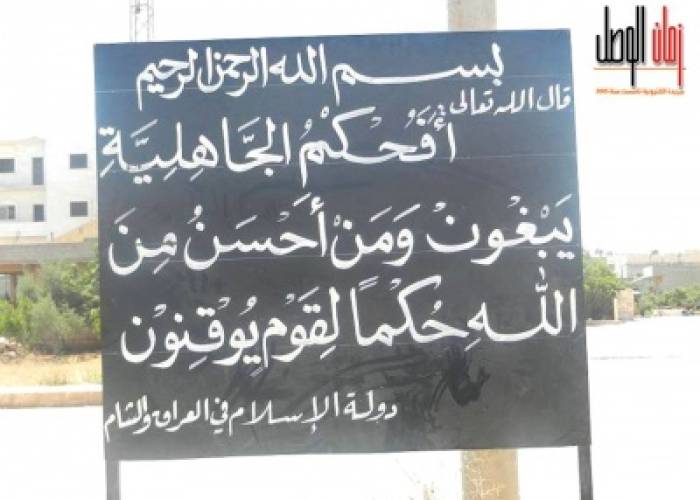 زمان الوصل
بسم الله الرحمن الرحيم
قال الله تعالى
أَفَحُكْمُ الجَاهِلِيَّةِ
يَبْغُونَ وَمَنْ أَحْسَنُ مِنَ
اللهِ حُكْمًا لِقَوْمٍ يُوقِنُونْ
دولة الإسلام في العراق والشام